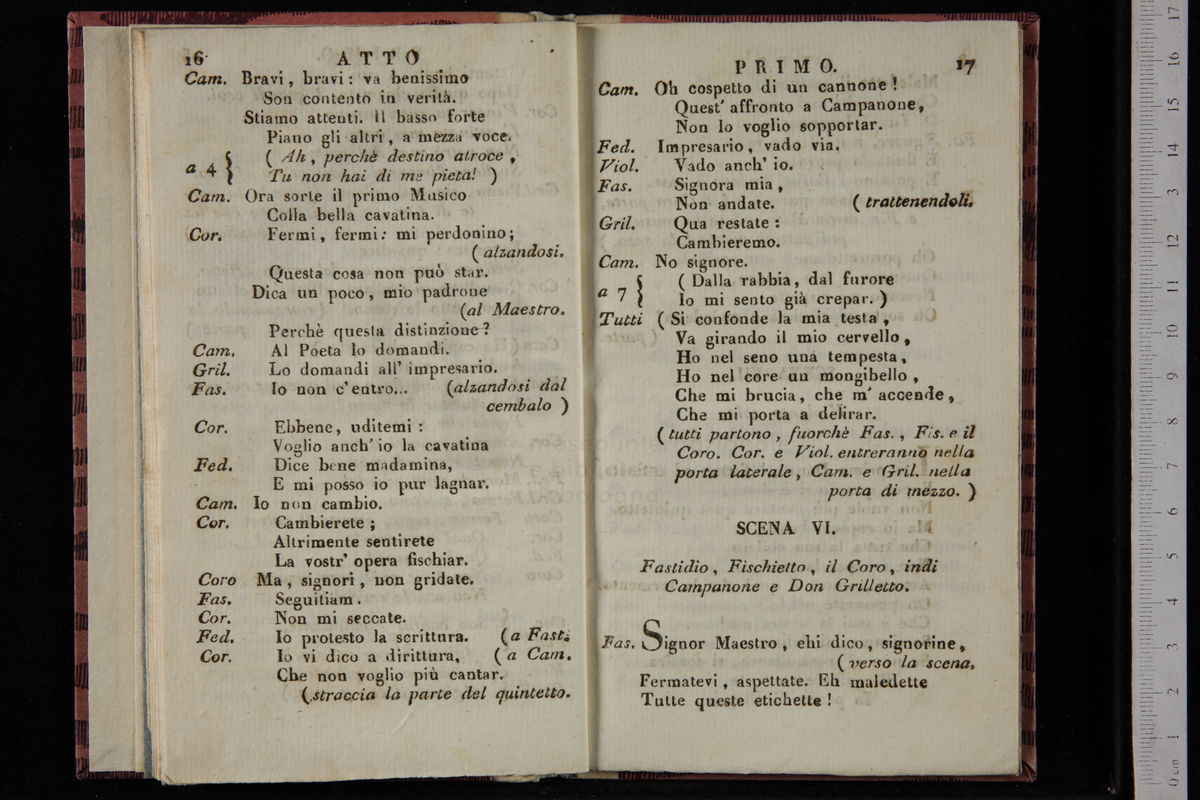 16 ATTO
Cam. Bravi, bravi: va benissimo
Son contento in verità.
Stiamo attenti. Il basso forte
Piano gli altri, a mezza voce.
a 4 { ( Ah, perchè destino atroce,
Tu non hai di me pietà! )
Cam. Ora sorte il primo Musico
Colla bella cavatina.
Cor. Fermi, fermi: mi perdonino;
( alzandosi.
Questa cosa non può star.
Dica un poco, mio padrone
(al Maestro.
Perchè questa distinzione?
Cam. Al Poeta lo domandi.
Gril. Lo domandi all' impresario.
Fas. Io non c'entro... (alzandosi dal
cembalo )
Cor. Ebbene, uditemi:
Voglio anch' io la cavatina
Fed. Dice bene madamina,
E mi posso io pur lagnar.
Cam. Io non cambio.
Cor. Cambierete;
Altrimente sentirete
La vostr' opera fischiar.
Coro Ma, signori, non gridate.
Fas. Seguitiam.
Cor. Non mi seccate.
Fed. Io protesto la scrittura. (a Fast.
Cor. Io vi dico a dirittura, (a Cam.
Che non voglio più cantar.
(straccia la parte del quintetto.
PRIMO. 17
Cam. Oh cospetto di un cannone!
Quest' affronto a Campanone,
Non lo voglio sopportar.
Fed. Impresario, vado via.
Viol. Vado anch' io.
Fas. Signora mia,
Non andate. ( trattenendoli.
Gril. Qua restate:
Cambieremo.
Cam. No signore.
a 7 { ( Dalla rabbia, dal furore
Io mi sento già crepar. )
Tutti ( Si confonde la mia testa,
Va girando il mio cervello,
Ho nel seno una tempesta,
Ho nel core un mongibello,
Che mi brucia, che m' accende,
Che mi porta a delirar.
( tutti partono, fuorchè Fas., Fis. e il
Coro. Cor. e Viol. entreranno nella
porta laterale, Cam. e Gril. nella
porta di mezzo. )
SCENA VI.
Fastidio, Fischietto, il Coro, indi
Campanone e Don Grilletto.
Fas. Signor Maestro, ehi dico, signorine,
( verso la scena.
Fermatevi, aspettate. Eh maledette
Tutte queste etichette!
0 cm 1 2 3 4 5 6 7 8 9 10 11 12 13 14 15 16 17